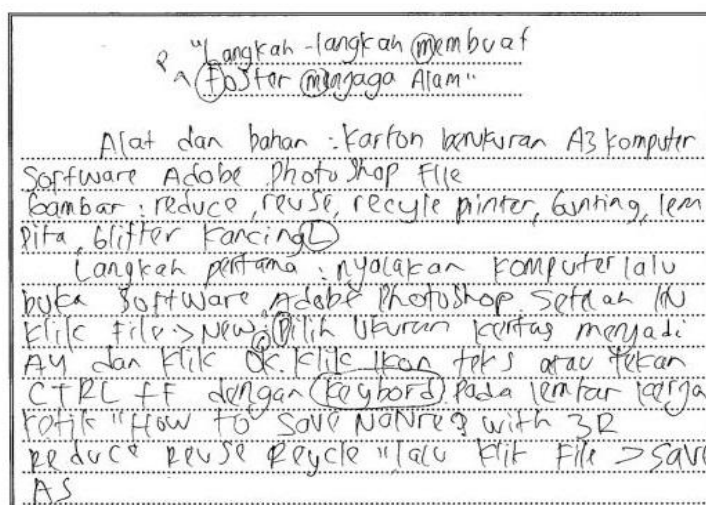 "Langkah-langkah membuat
P
Foster menjaga Alam"
Alat dan bahan : Karton berukuran A3 komputer
Software Adobe Photo Shop File
Gambar : reduce, reuse, recyle printer, Gunting, lem
Pita, Glifter Kancing L
Langkah pertama : nyalakan komputer lalu
buka Software Adobe Photoshop Setelah
klik File > New . Pilih Ukuran kertas menjadi
A4 dan Klik Ok. Klik Ikon teks atau Tekan
CTRL + F dengan keybord. Pada lembar kerja
ketik "How to Save Nature? with 3R
Reduce Reuse Reycle" lalu klik File > Save
AS